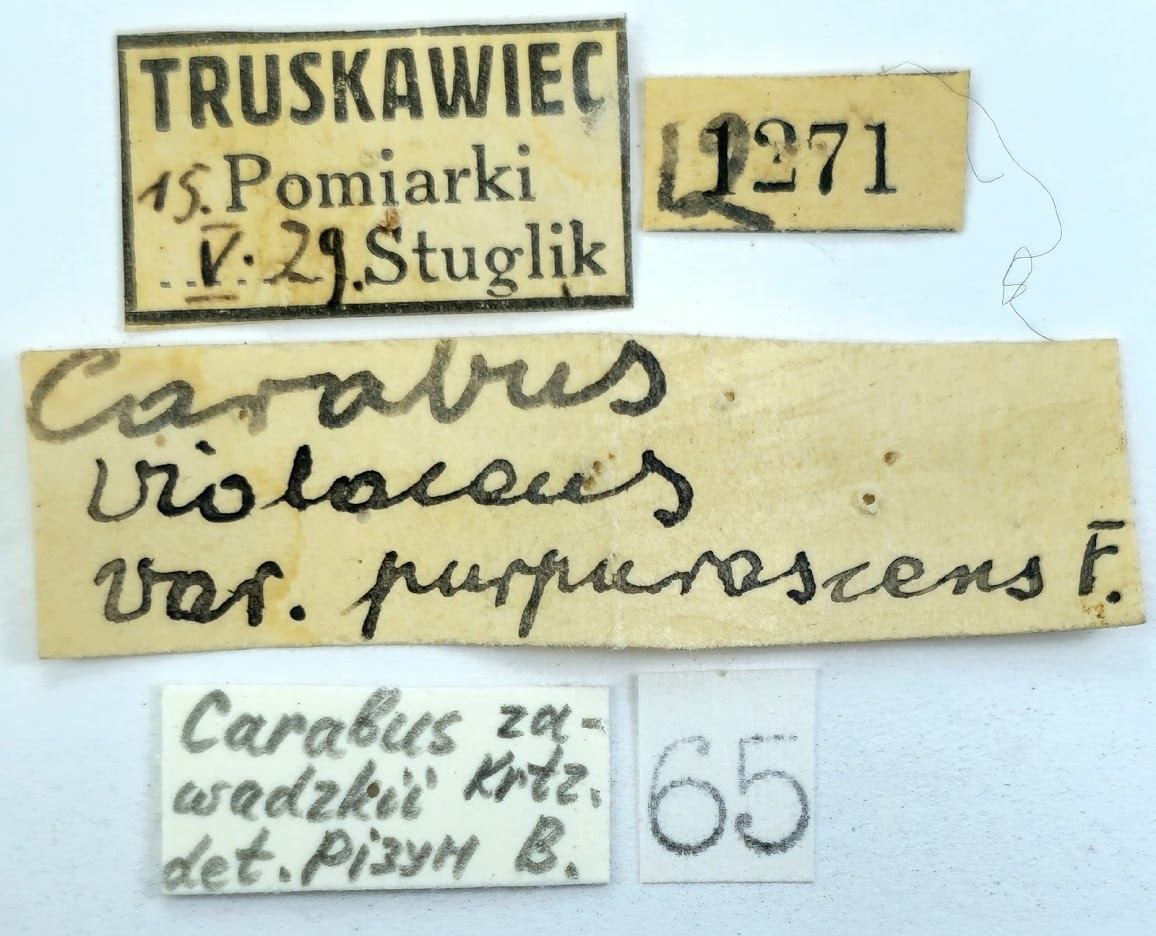 TRUSKAWIEC
15. Pomiarki
V. 29. Stuglik
1271
Carabus
violaceus
var. purpurascens F.
Carabus za-
wadzkii Krtz.
det. Різун В.
65